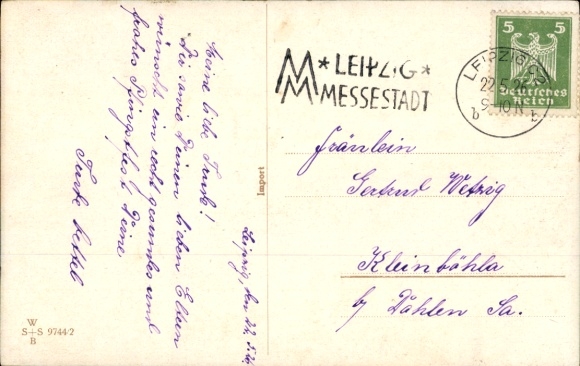 Leipzig, den 22.5.26
Meine liebe Trude!
Dir sowie Deinen lieben Eltern
wünscht ein recht gesundes und
frohes Pfingstfest Deine
Tante
Import
W
S+S 9744/2
B
* LEIPZIG *
MM MESSESTADT
LEIPZIG
22.5.26
9-10 N
b b
5 5
Deutsches
Reich
Fräulein
Gertrud Wetzig
Kleinböhla
b/ Dahlen Sa.